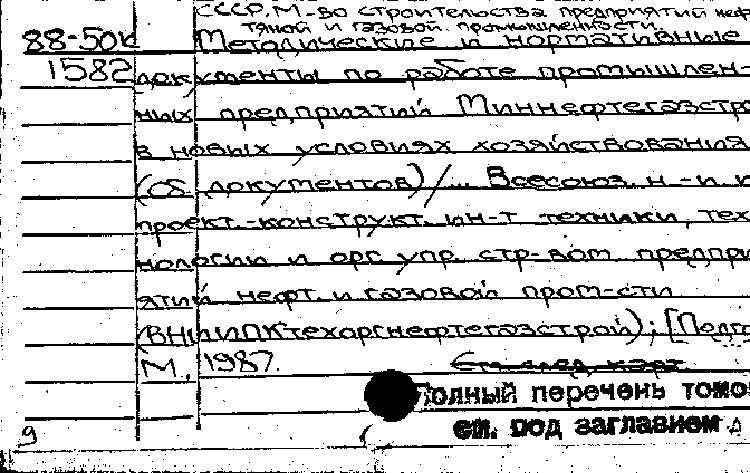 СССР. М-во строительства предприятий неф
тяной и газовой промышленности.
88-50к Методические и нормативные
1582 документы по работе промышлен-
ных предприятий Миннефтегазстр
в новых условиях хозяйствования
(сб. документов) / ... Всесоюз. н.-и. и
проект.-конструкт. ин-т техники, тех
нологии и орг. упр. стр-вом предпри
ятий нефт. и газовой пром-сти
(ВНИИПКтехоргнефтегазстрой); [Подго
М., 1987.
См. след. карт.
Полный перечень томо
см. под заглавием
9